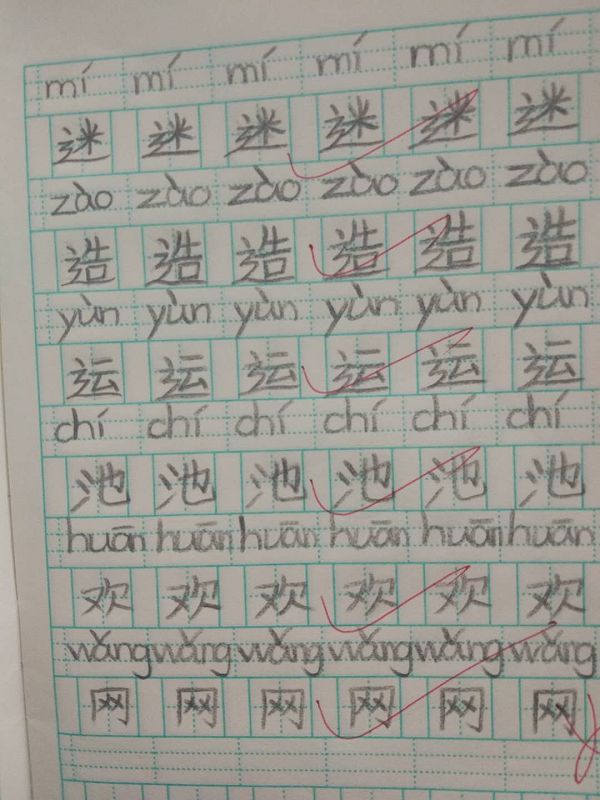 mí mí mí mí mí mí
迷 迷 迷 迷 迷 迷
zào zào zào zào zào zào
造 造 造 造 造 造
yùn yùn yùn yùn yùn yùn
运 运 运 运 运 运
chí chí chí chí chí chí
池 池 池 池 池 池
huān huān huān huān huān huān
欢 欢 欢 欢 欢 欢
wǎng wǎng wǎng wǎng wǎng wǎng
网 网 网 网 网 网